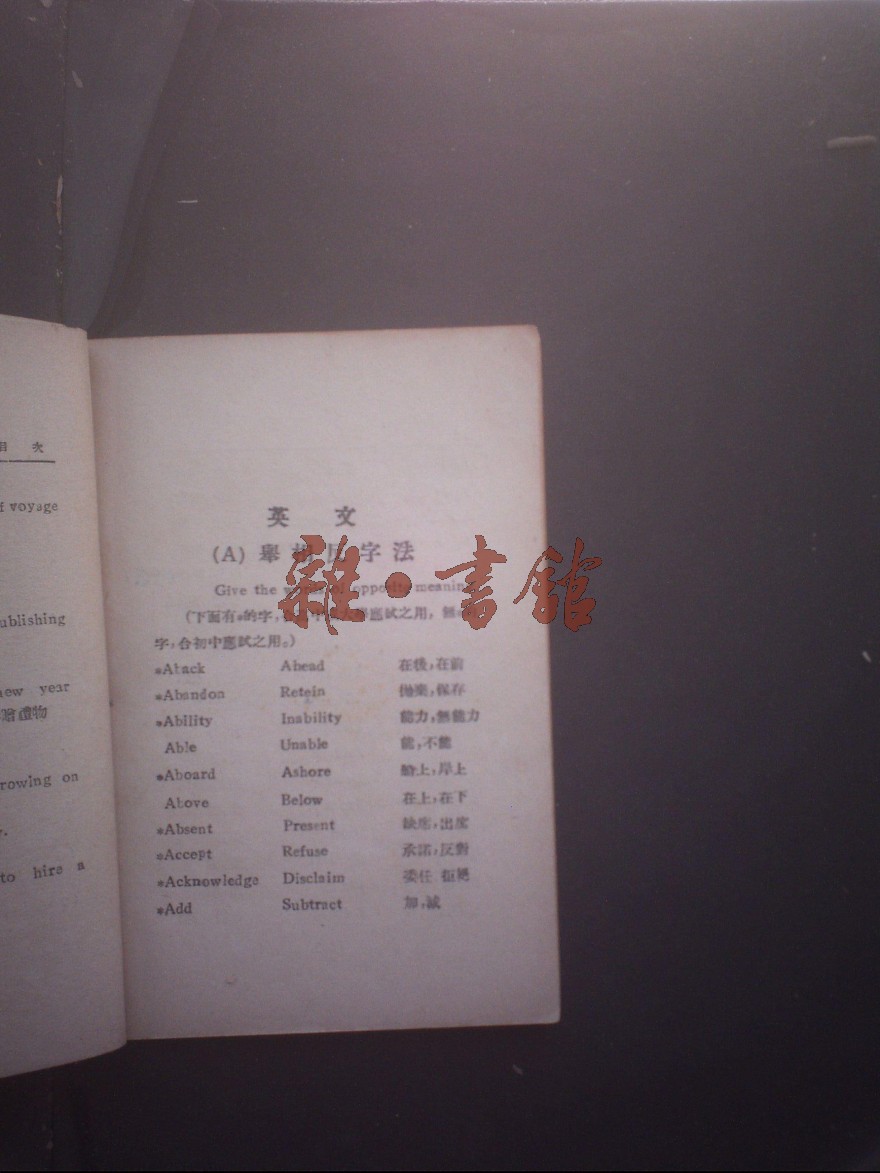 次
f voyage
ublishing
new year
贈禮物
rowing on
to hire a
英 文
(A) 舉 字 法
Give the of opposite meaning
(下面有*的字, 應試之用,
字,合初中應試之用。)
*Aback Ahead 在後,在前
*Abandon Retein 拋棄,保存
*Ability Inability 能力,無能力
Able Unable 能,不能
*Aboard Ashore 船上,岸上
Above Below 在上,在下
*Absent Present 缺席,出席
*Accept Refuse 承諾,反對
*Acknowledge Disclaim 委任 拒絕
*Add Subtract 加,減
雜·書館